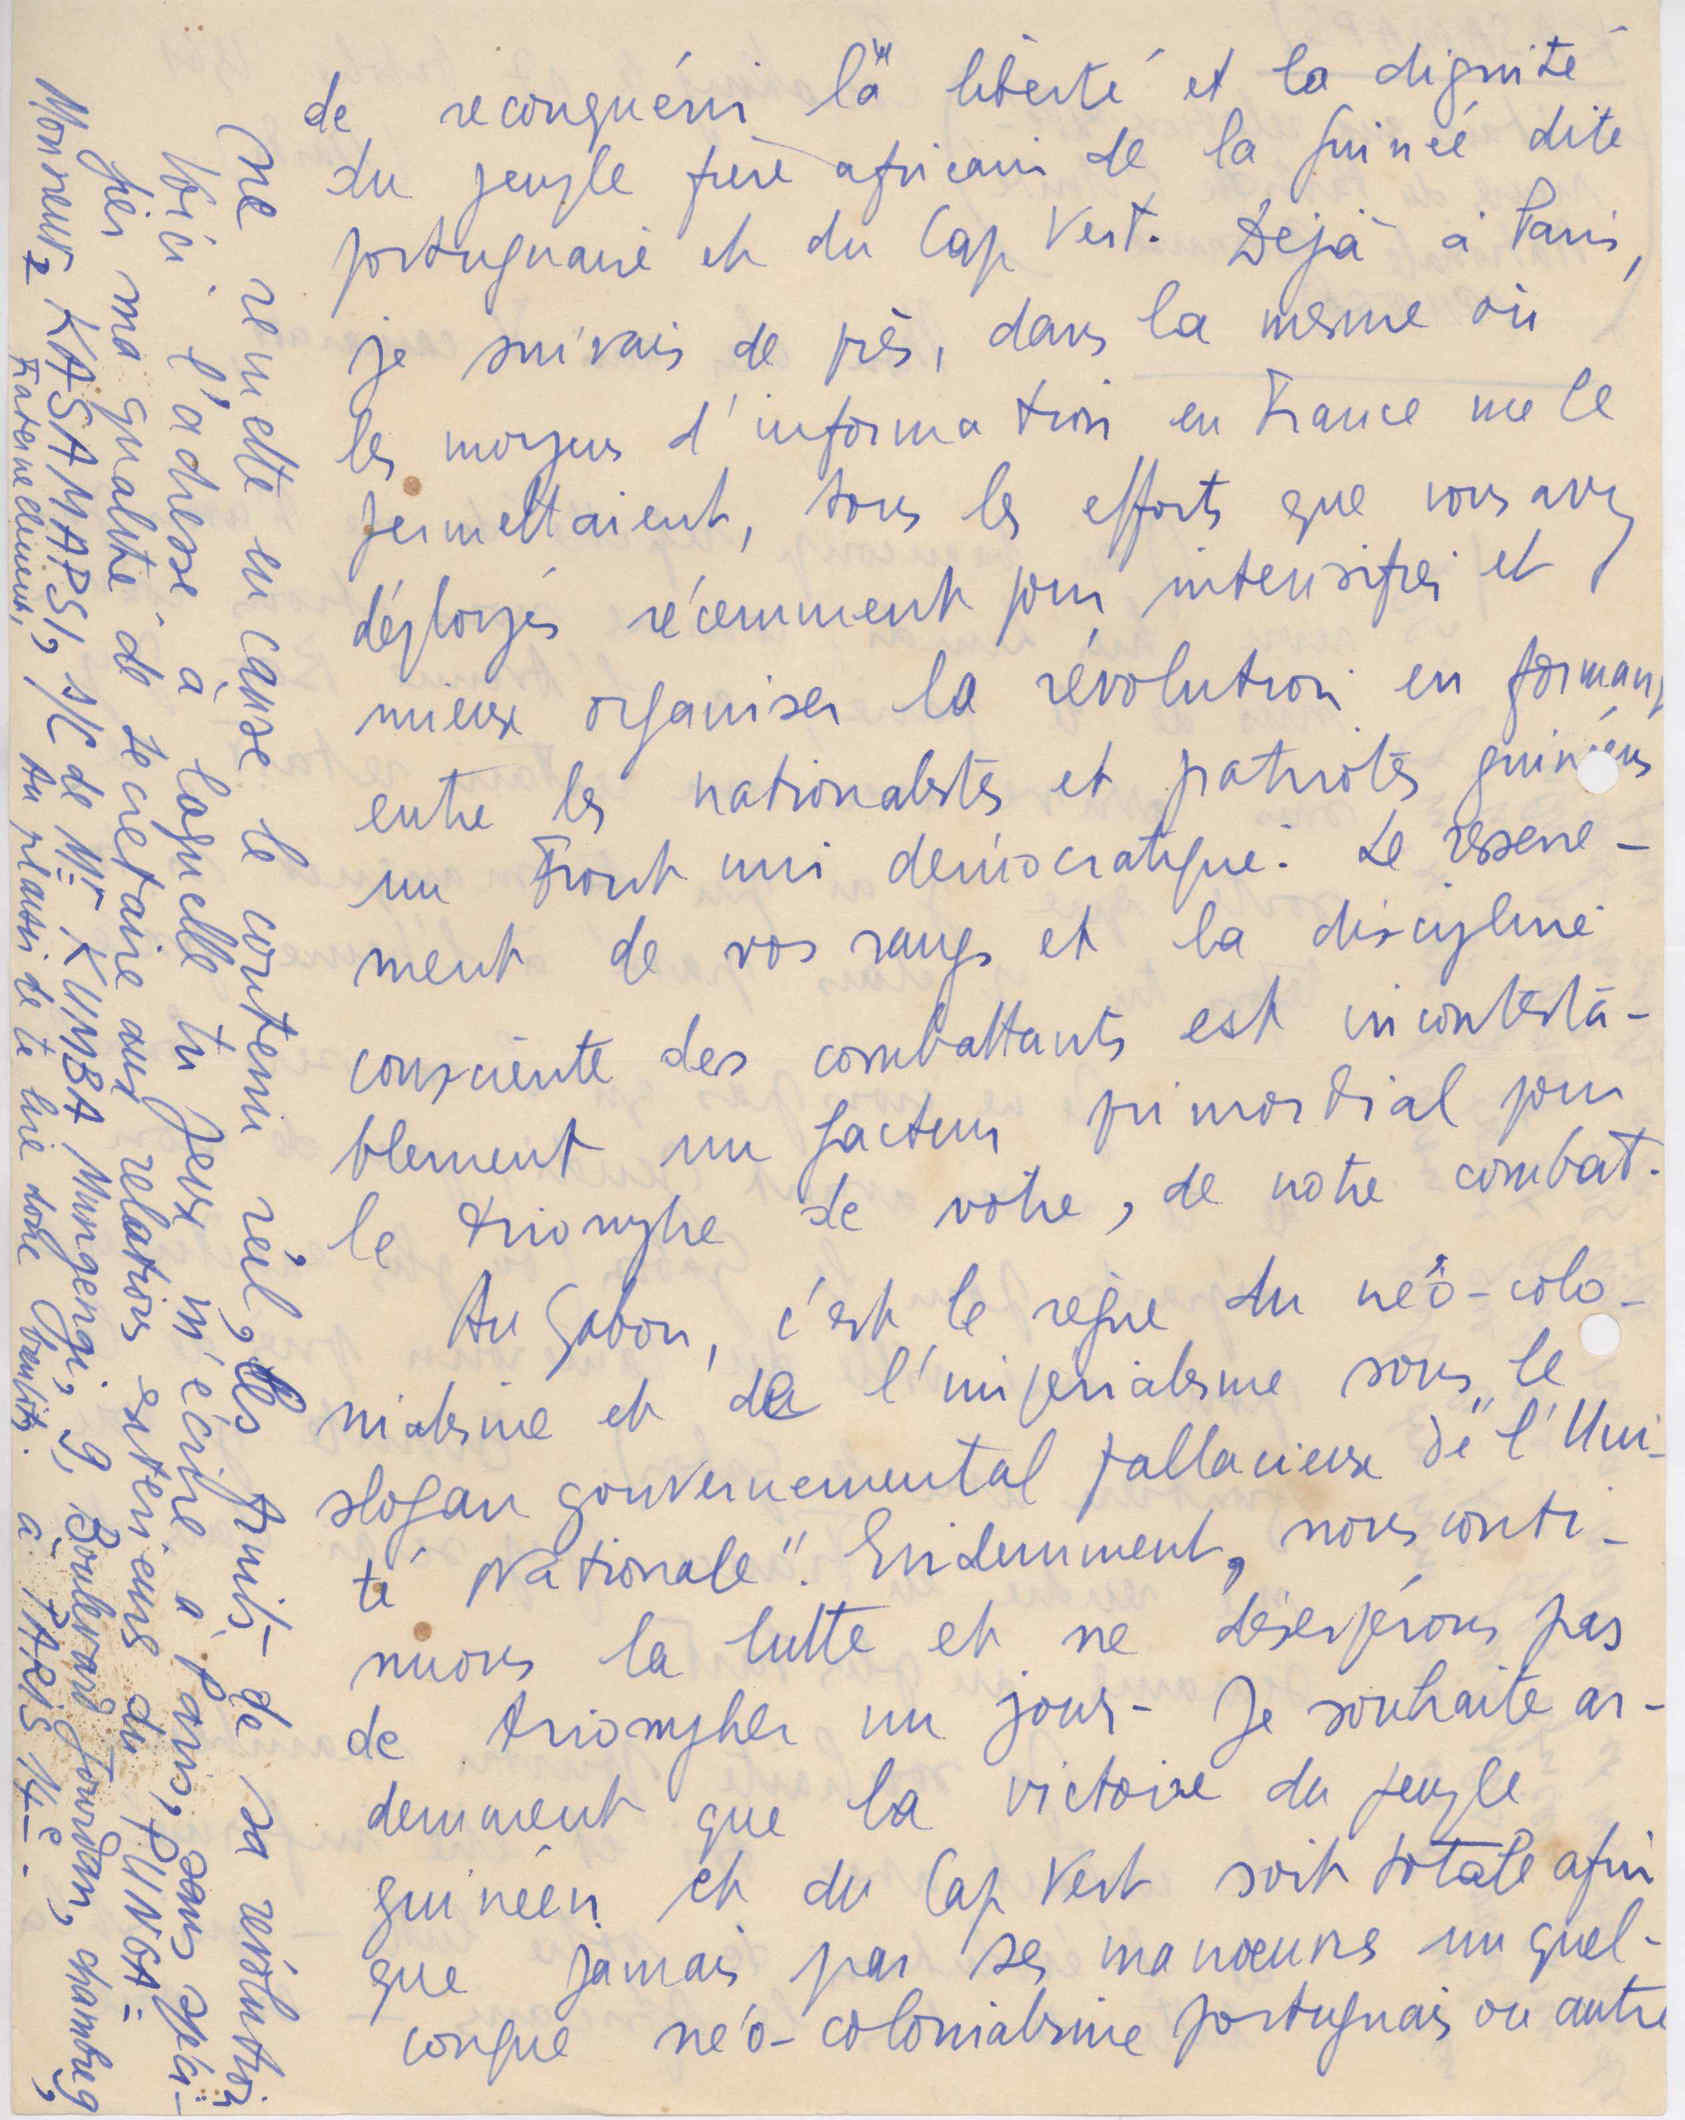 de reconquérir la liberté et la dignité
du peuple frère africain de la Guinée dite
portugaise et du Cap Vert. Déjà à Paris,
je suivais de près, dans la mesure où
les moyens d'information en France me le
permettaient, tous les efforts que vous avez
déployés récemment pour intensifier et
mieux organiser la révolution en formant
entre les nationalistes et patriotes guinéens
un Front uni démocratique. Le resserre-
ment de vos rangs et la discipline
consciente des combattants est incontesta-
blement un facteur primordial pour
le triomphe de votre, de notre combat.
Au Gabon, c'est le règne du néo-colo-
nialisme et de l'impérialisme sous le
slogan gouvernemental fallacieux de "l'Uni-
té Nationale". Evidemment, nous conti-
nuons la lutte et ne désespérons pas
de triompher un jour. Je souhaite ar-
demment que la victoire du peuple
guinéen et du Cap Vert soit totale afin
que jamais par ses manœuvres un quel-
conque néo-colonialisme portugais ou autre
ne remette en cause le contenu réel, les Acquis de sa révolution.
Voici l'adresse à laquelle tu peux m'écrire à Paris, sans spéci-
fier ma qualité de secrétaire aux relations extérieures du PUNGA =
Monsieur KASAMAPSI, s/c de Mr KUMBA Mungengi, 9, Boulevard Jourdan, chambre,
Fraternellement, Au plaisir de te lire donc bientôt. à PARIS 14e.